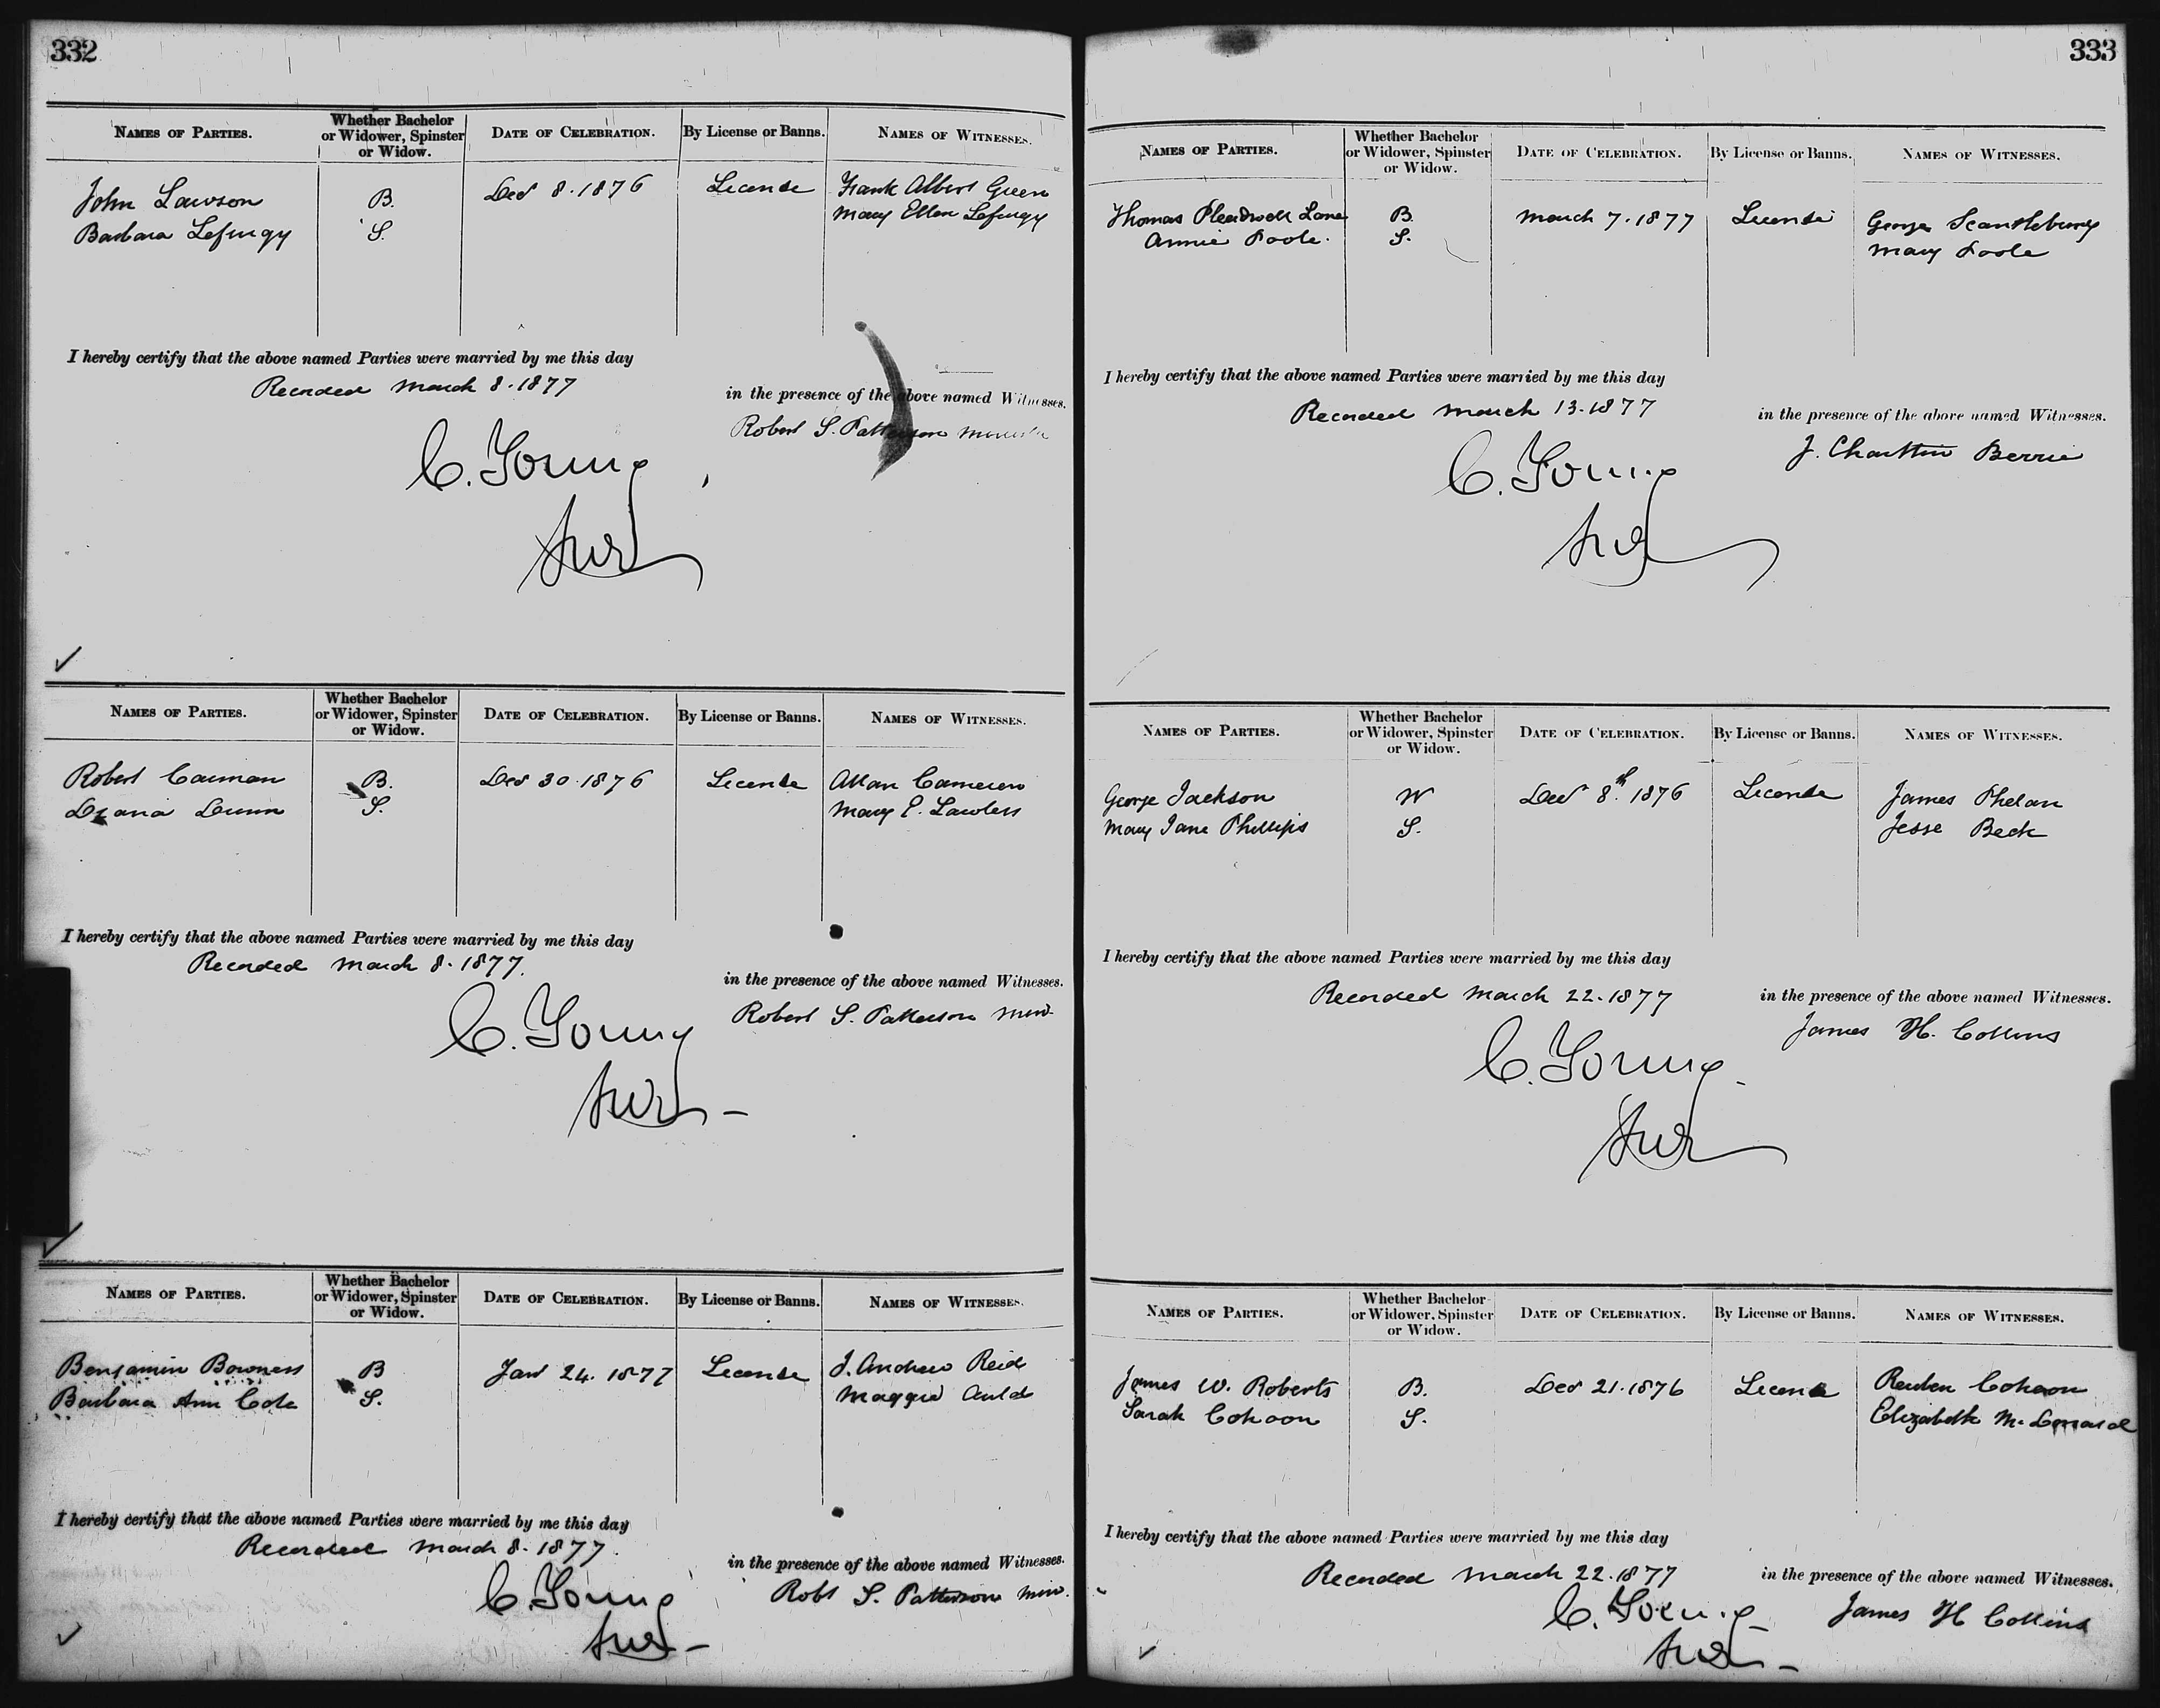 332
NAMES OF PARTIES. Whether Bachelor or Widower, Spinster or Widow. DATE OF CELEBRATION. By License or Banns. NAMES OF WITNESSES.
John Lawson B. Decr 8. 1876 License Frank Albert Green
Barbara Lefurgy S. Mary Ellen Lefurgy
I hereby certify that the above named Parties were married by me this day
Recorded March 8. 1877
in the presence of the above named Witnesses.
Robert S. Patterson Minister
C. Young
NAMES OF PARTIES. Whether Bachelor or Widower, Spinster or Widow. DATE OF CELEBRATION. By License or Banns. NAMES OF WITNESSES.
Robert Caiman B. Decr 30. 1876 License Allan Cameron
Dunn S. Mary E. Lawless
I hereby certify that the above named Parties were married by me this day
Recorded March 8. 1877.
in the presence of the above named Witnesses.
Robert S. Patterson Minr
C. Young
NAMES OF PARTIES. Whether Bachelor or Widower, Spinster or Widow. DATE OF CELEBRATION. By License or Banns. NAMES OF WITNESSES.
Benjamin Bowness B Jany 24. 1877 License J. Andrew Reid
Barbara Ann Cole S. Maggie Auld
I hereby certify that the above named Parties were married by me this day
Recorded March 8. 1877.
in the presence of the above named Witnesses.
Robt S. Patterson Minr.
C. Young
333
NAMES OF PARTIES. Whether Bachelor or Widower, Spinster or Widow. DATE OF CELEBRATION. By License or Banns. NAMES OF WITNESSES.
Thomas Pleadwell Lane B. March 7. 1877 License George Scantlebury
Annie Poole. S. Mary Poole
I hereby certify that the above named Parties were married by me this day
Recorded March 13. 1877
in the presence of the above named Witnesses.
J. Berrie
C. Young
NAMES OF PARTIES. Whether Bachelor or Widower, Spinster or Widow. DATE OF CELEBRATION. By License or Banns. NAMES OF WITNESSES.
George Jackson W Decr 8th 1876 License James Phelan
Mary Jane Phillips S. Jesse Beck
I hereby certify that the above named Parties were married by me this day
Recorded March 22. 1877
in the presence of the above named Witnesses.
James H. Collins
C. Young
NAMES OF PARTIES. Whether Bachelor or Widower, Spinster or Widow. DATE OF CELEBRATION. By License or Banns. NAMES OF WITNESSES.
James W. Roberts B. Decr 21. 1876 License Reuben Cohoon
Sarah Cohoon S. Elizabeth McDonald
I hereby certify that the above named Parties were married by me this day
Recorded March 22. 1877
in the presence of the above named Witnesses.
James H Collins
C. Young